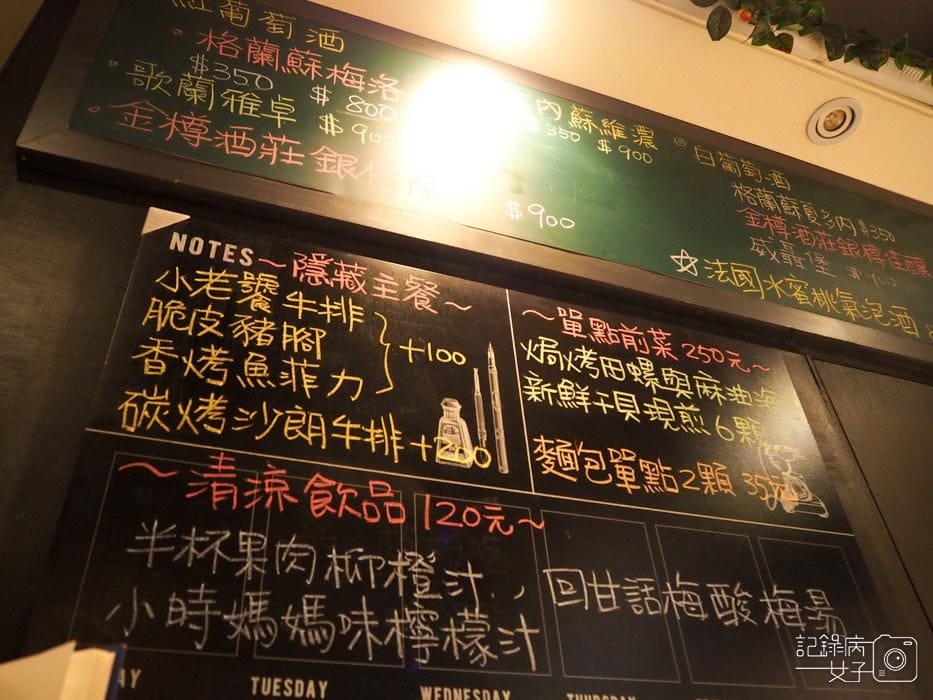 紅葡萄酒
格蘭蘇梅洛
$350 $800
歌蘭雅卓 $900
金樽酒莊 銀
內 蘇維濃
$350 $900
$900
白葡萄酒
格蘭蘇夏多內 $350
金樽酒莊銀樽佳釀
威聶堡
☆法國水蜜桃氣泡酒
NOTES ~隱藏主餐~
小老饕牛排
脆皮豬腳
香烤魚菲力
+100
碳烤沙朗牛排 +200
~單點前菜 250元~
焗烤田螺與麻油
新鮮干貝現煎6顆
麵包單點2顆 35元
~清涼飲品 120元~
半杯果肉柳橙汁、回甘話梅酸梅湯
小時媽媽味檸檬汁
AY
TUESDAY
WEDNESDAY
THURSDAY
記錄病
女子